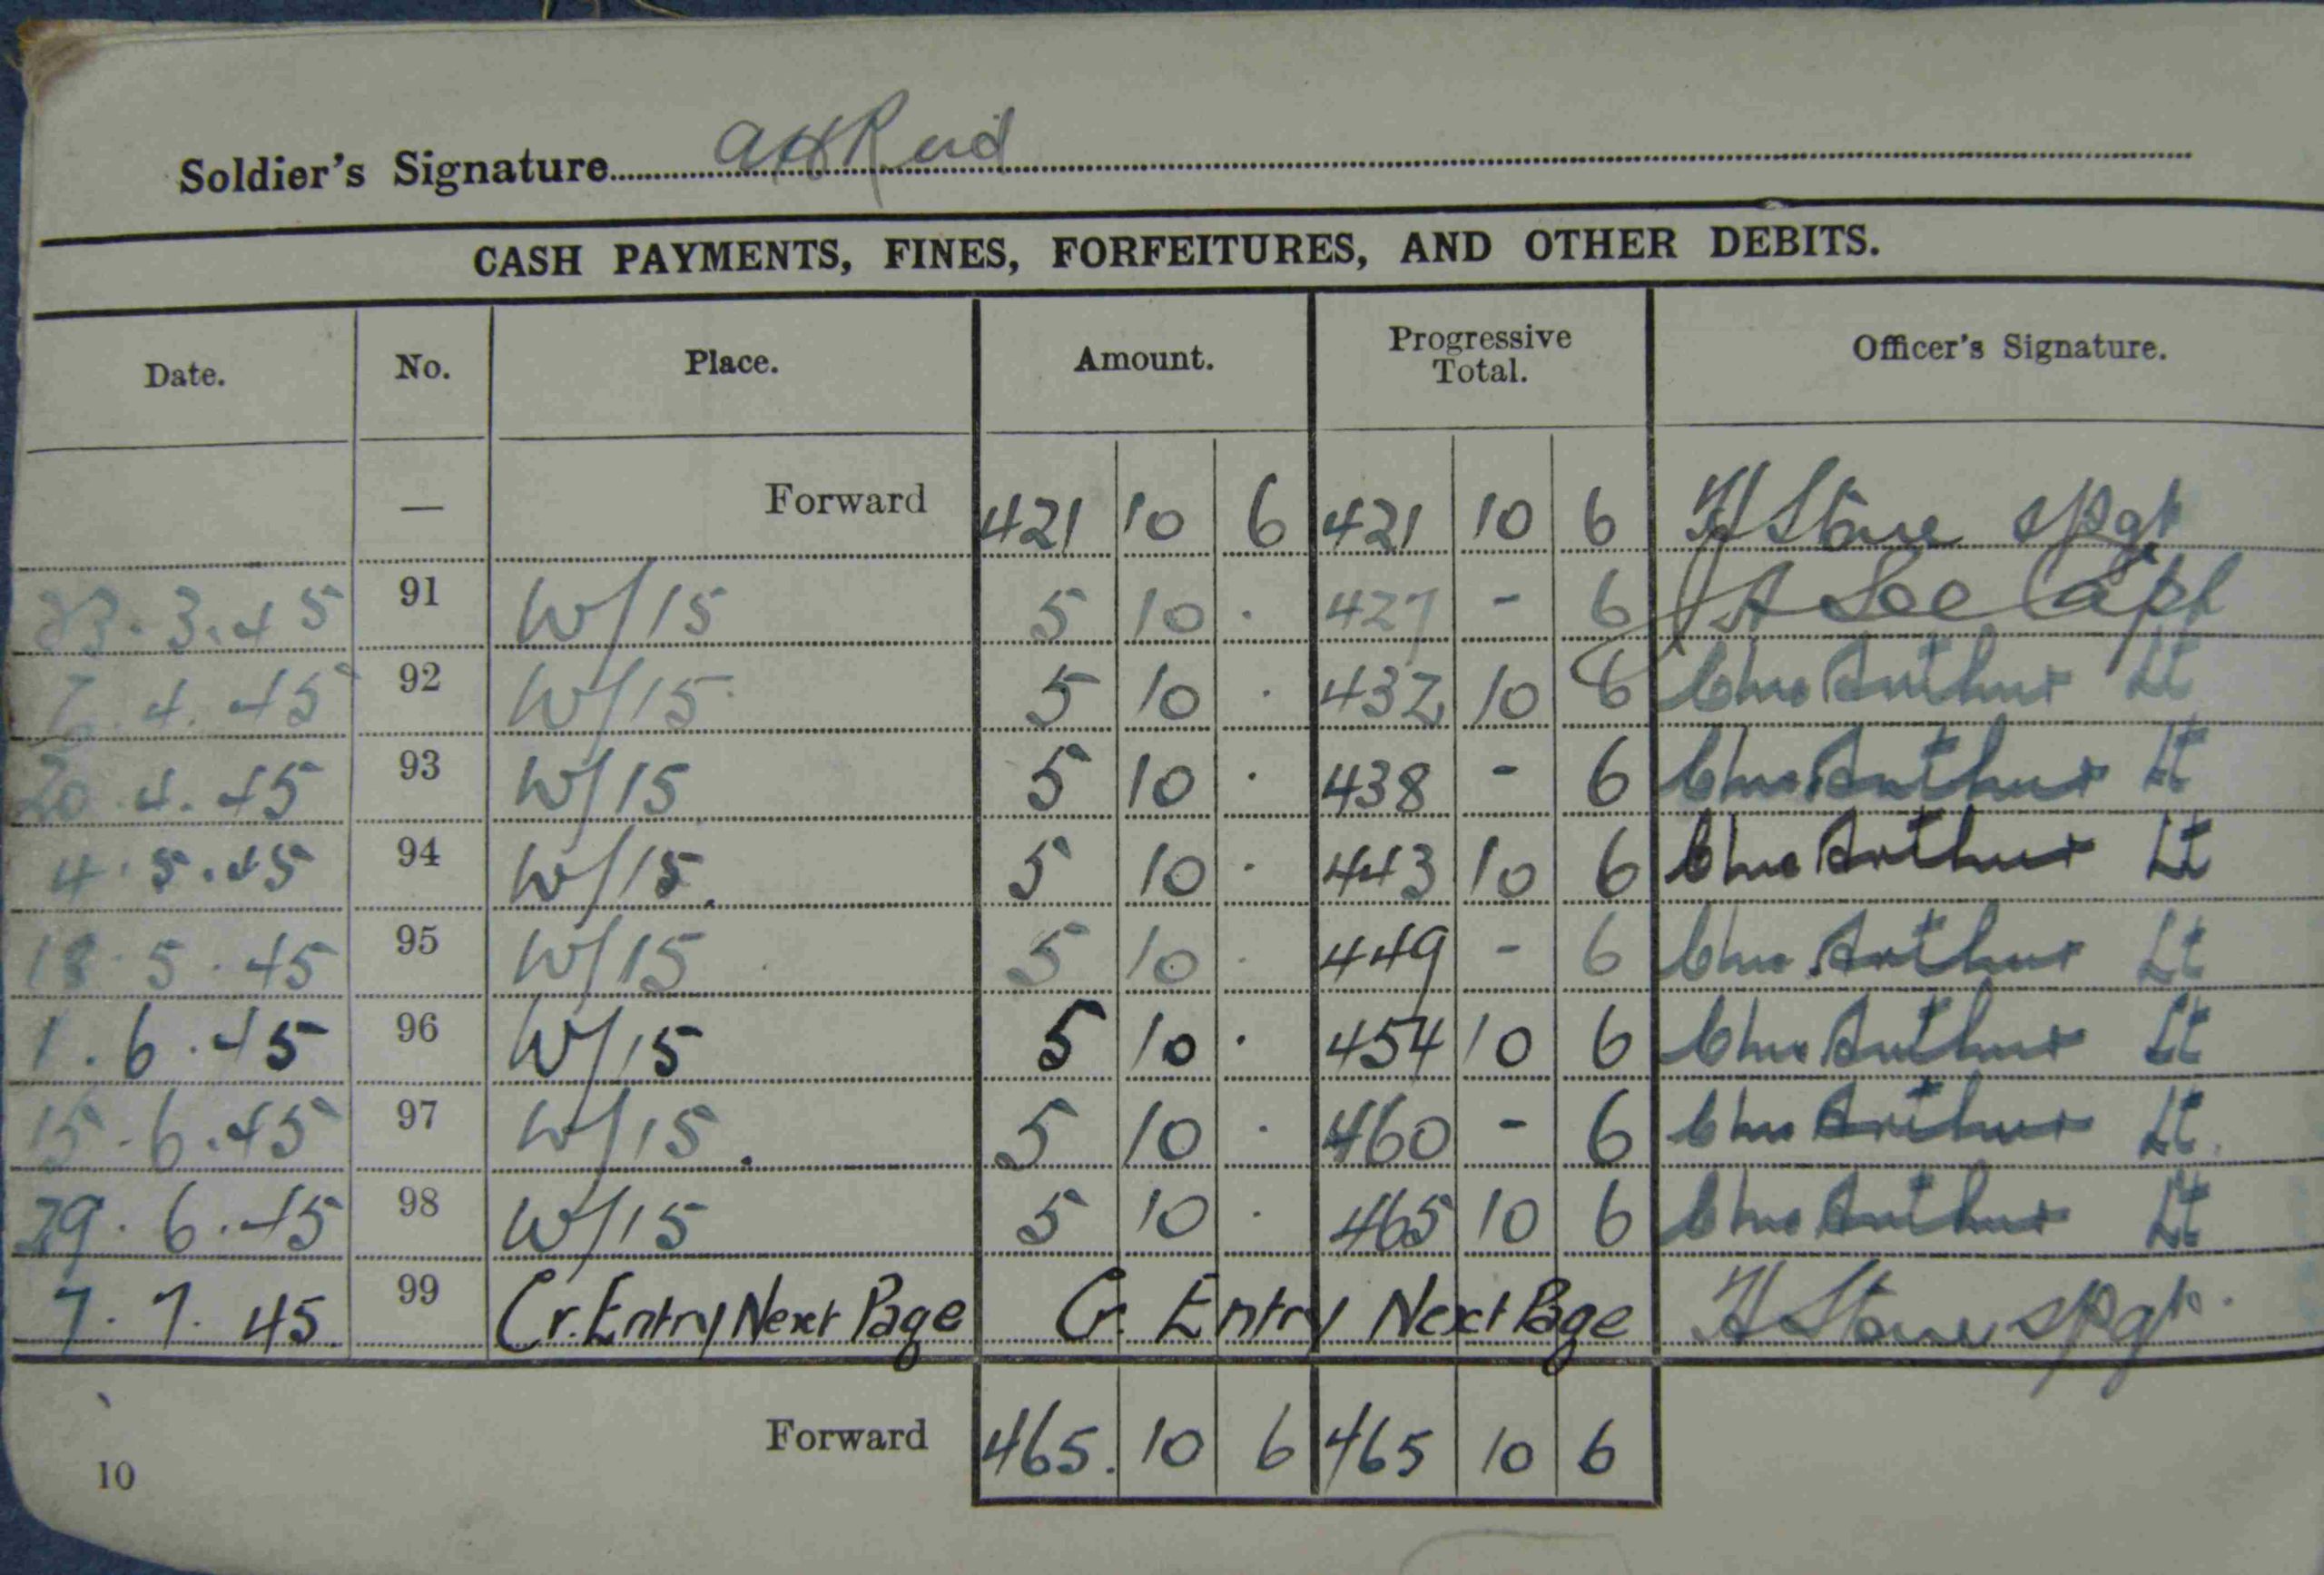 Soldier's Signature AHReid
CASH PAYMENTS, FINES, FORFEITURES, AND OTHER DEBITS.
Date. No. Place. Amount. Progressive Total. Officer's Signature.
— Forward 421 10 6 421 10 6 H Stone
23.3.45 91 W/15 5 10 · 427 - 6 Lee Capt
7.4.45 92 W/15 5 10 · 432 10 6 Arthur Lt
20.4.45 93 W/15 5 10 · 438 - 6 Arthur Lt
4.5.45 94 W/15. 5 10 · 443 10 6 Arthur Lt
18.5.45 95 W/15 5 10 · 449 - 6 Arthur Lt
1.6.45 96 W/15 5 10 · 454 10 6 Arthur Lt
15.6.45 97 W/15. 5 10 · 460 - 6 Arthur Lt.
29.6.45 98 W/15 5 10 · 465 10 6 Arthur Lt
7.7.45 99 Cr. Entry Next Page Cr. Entry Next Page H Stone
Forward 465. 10 6 465 10 6
10